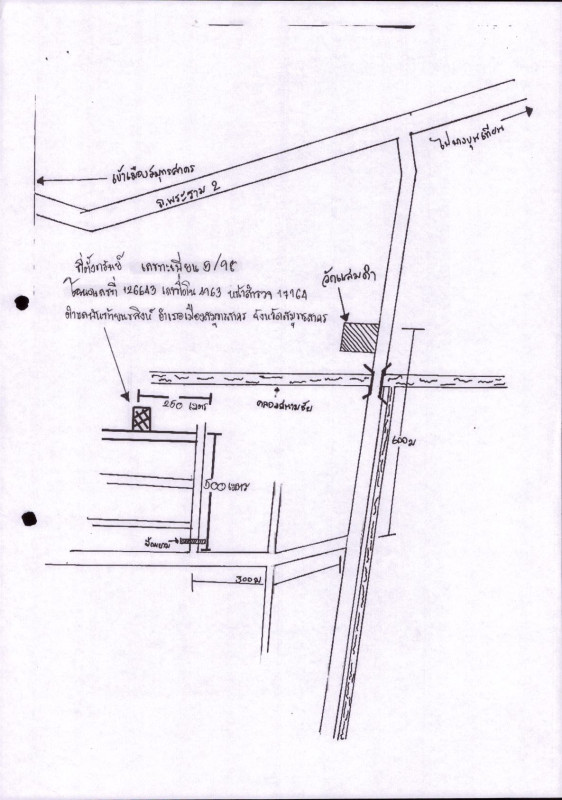 ไปบางขุนเทียน
เข้าเมืองสมุทรสาคร
ถ.พระราม 2
ที่ตั้งทรัพย์
โฉนดเลขที่ 126643 เลขที่ดิน 4763 หน้าสำรวจ 17164
ตำบลพันท้ายนรสิงห์ อำเภอเมืองสมุทรสาคร จังหวัดสมุทรสาคร
วัดแสมดำ
250 เมตร
คลองมหาชัย
600ม
500 เมตร
ป้อมยาม
300ม